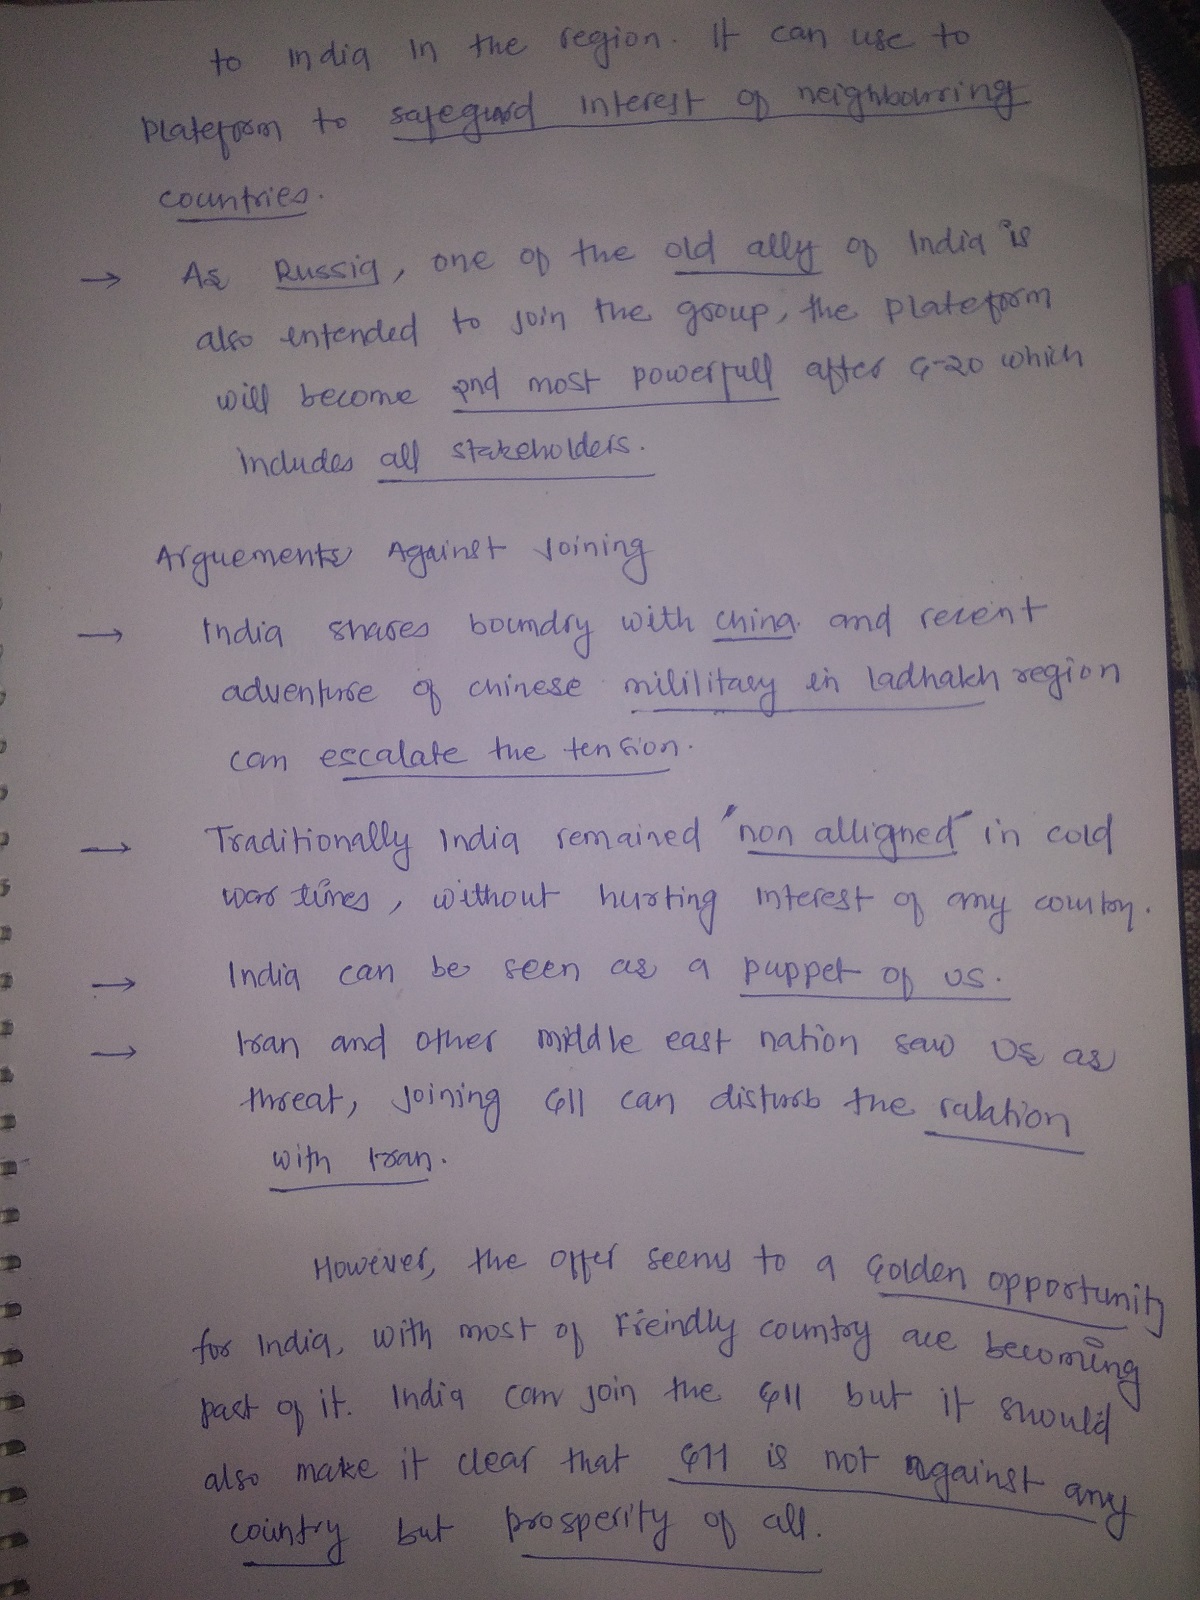 to India in the region. It can use to
plateform to safegurd interest of neighbourring
countries.
→ As Russia, one of the old ally of India is
also entended to join the group, the plateform
will become 2nd most powerfull after G-20 which
includes all stakeholders.
Arguements Against Joining
→ India shares boundry with China and recent
adventure of chinese mililitary in ladhakh region
can escalate the tension.
→ Traditionally India remained "non alligned" in cold
war times, without hurting interest of any country.
→ India can be seen as a puppet of US.
→ Iran and other middle east nation saw US as
threat, joining G11 can disturb the ralation
with Iran.
However, the offer seems to a Golden opportunity
for India, with most of Freindly country are becoming
part of it. India can join the G11 but it should
also make it clear that G11 is not against any
country but prosperity of all.